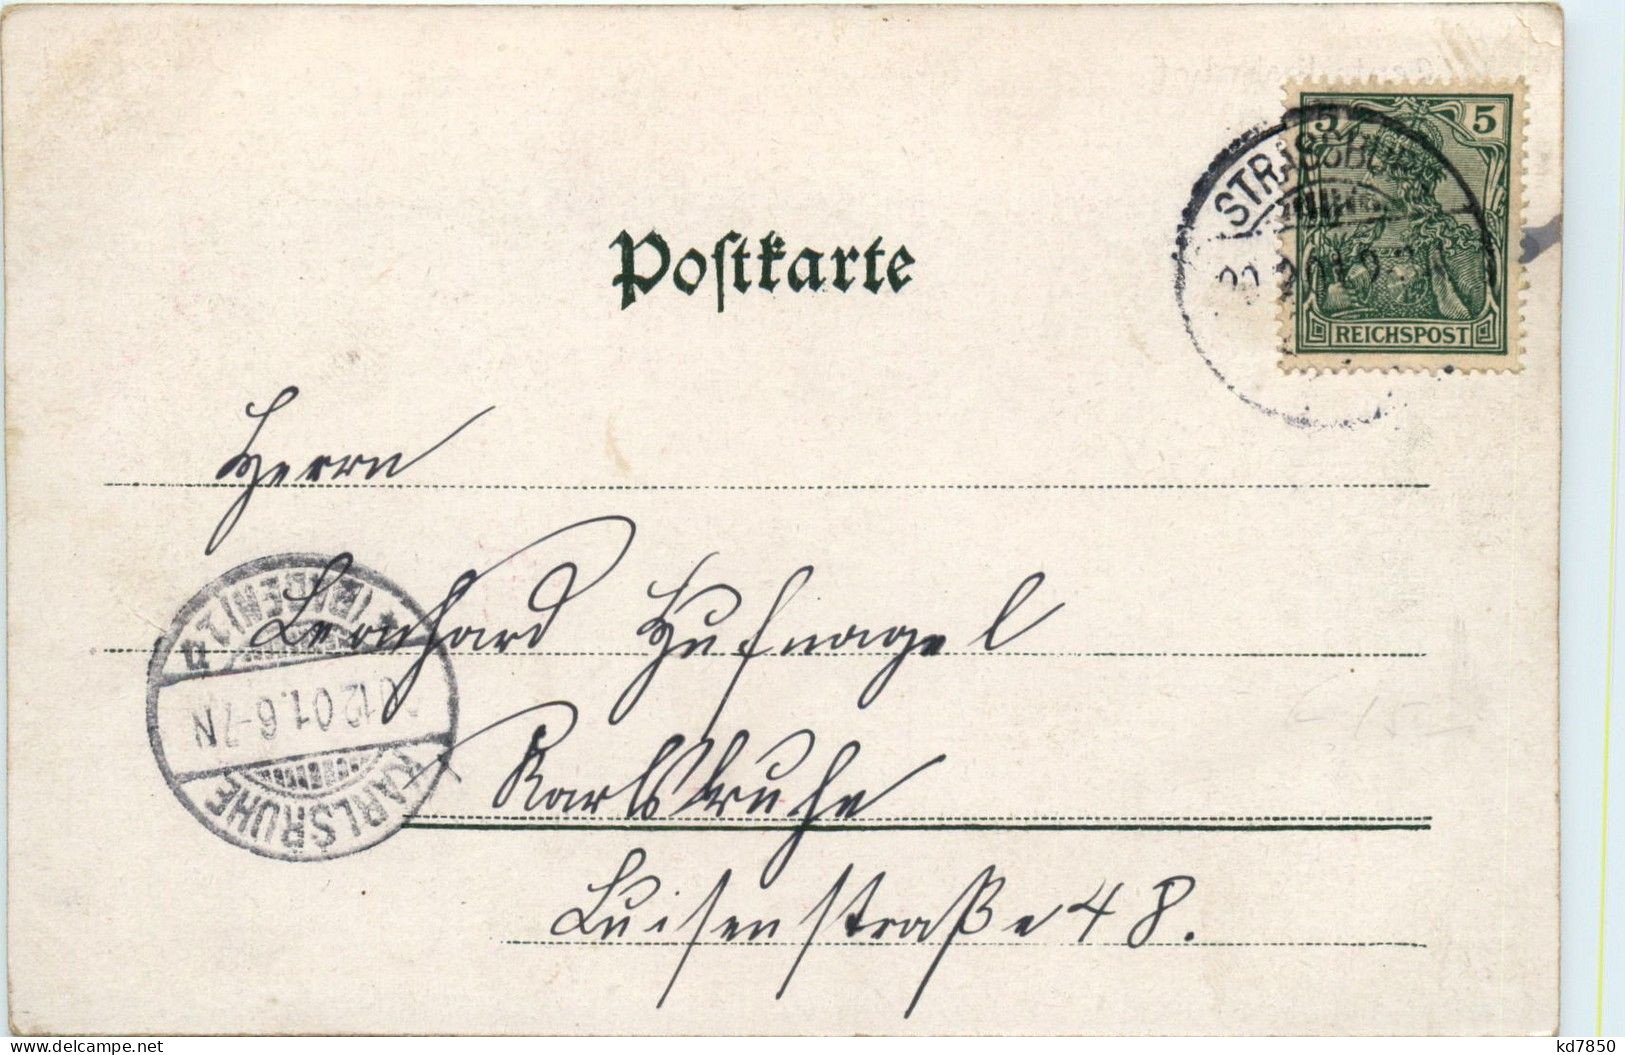 5 5
STRASSBURG
REICHSPOST
Postkarte
Herrn
Leonhard Hufnagel
Karlsruhe
Luisenstraße 48.
KARLSRUHE (BADEN) 1.
12.01.6-7N
www.delcampe.net
kd7850